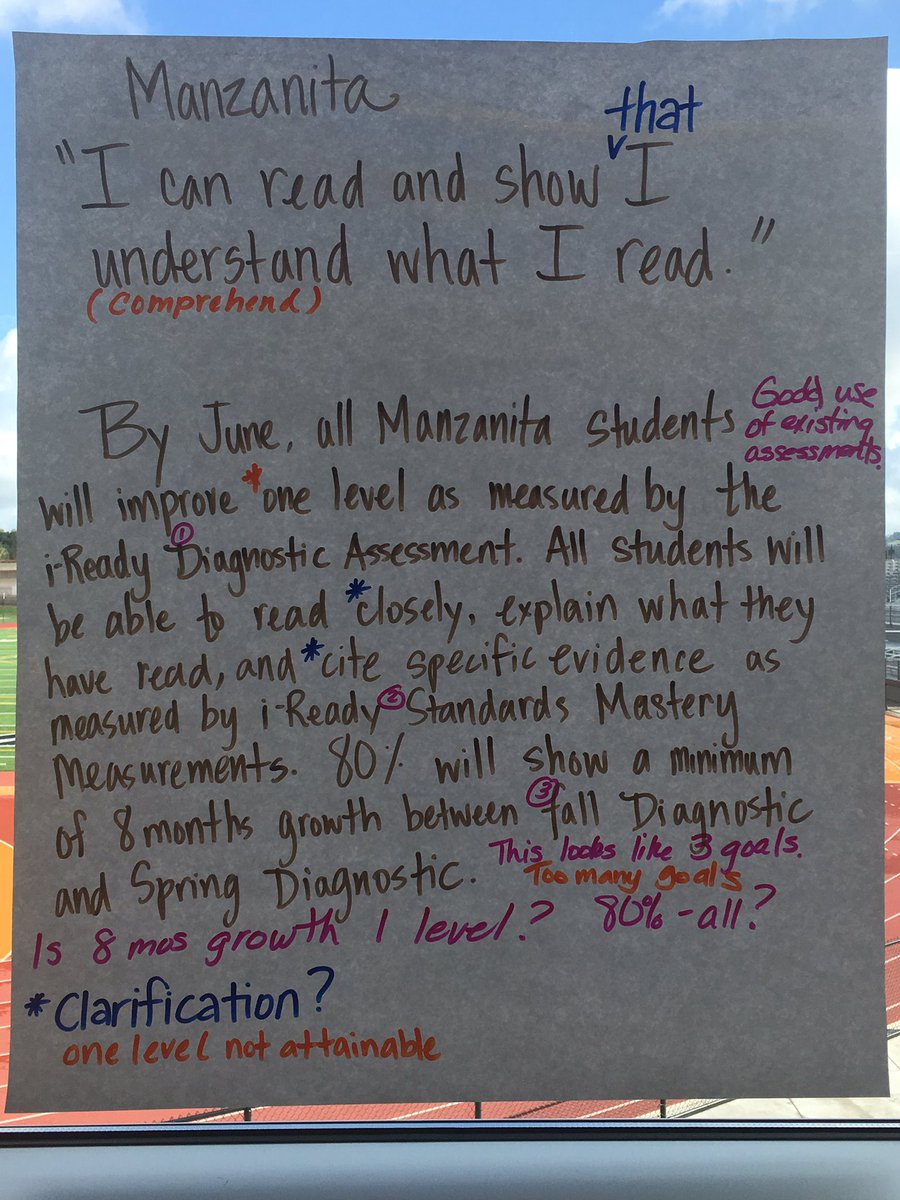 Manzanita
that
"I can read and show I
understand what I read."
(Comprehend)
Good use
of existing
assessments.
By June, all Manzanita students
will improve *one level as measured by the
①
i-Ready Diagnostic Assessment. All students will
be able to read *closely, explain what they
have read, and *cite specific evidence as
measured by i-Ready ② Standards Mastery
Measurements. 80% will show a minimum
③
of 8 months growth between fall Diagnostic
This looks like 3 goals.
and Spring Diagnostic. Too many goals
Is 8 mos growth 1 level? 80% - all?
*Clarification?
one level not attainable